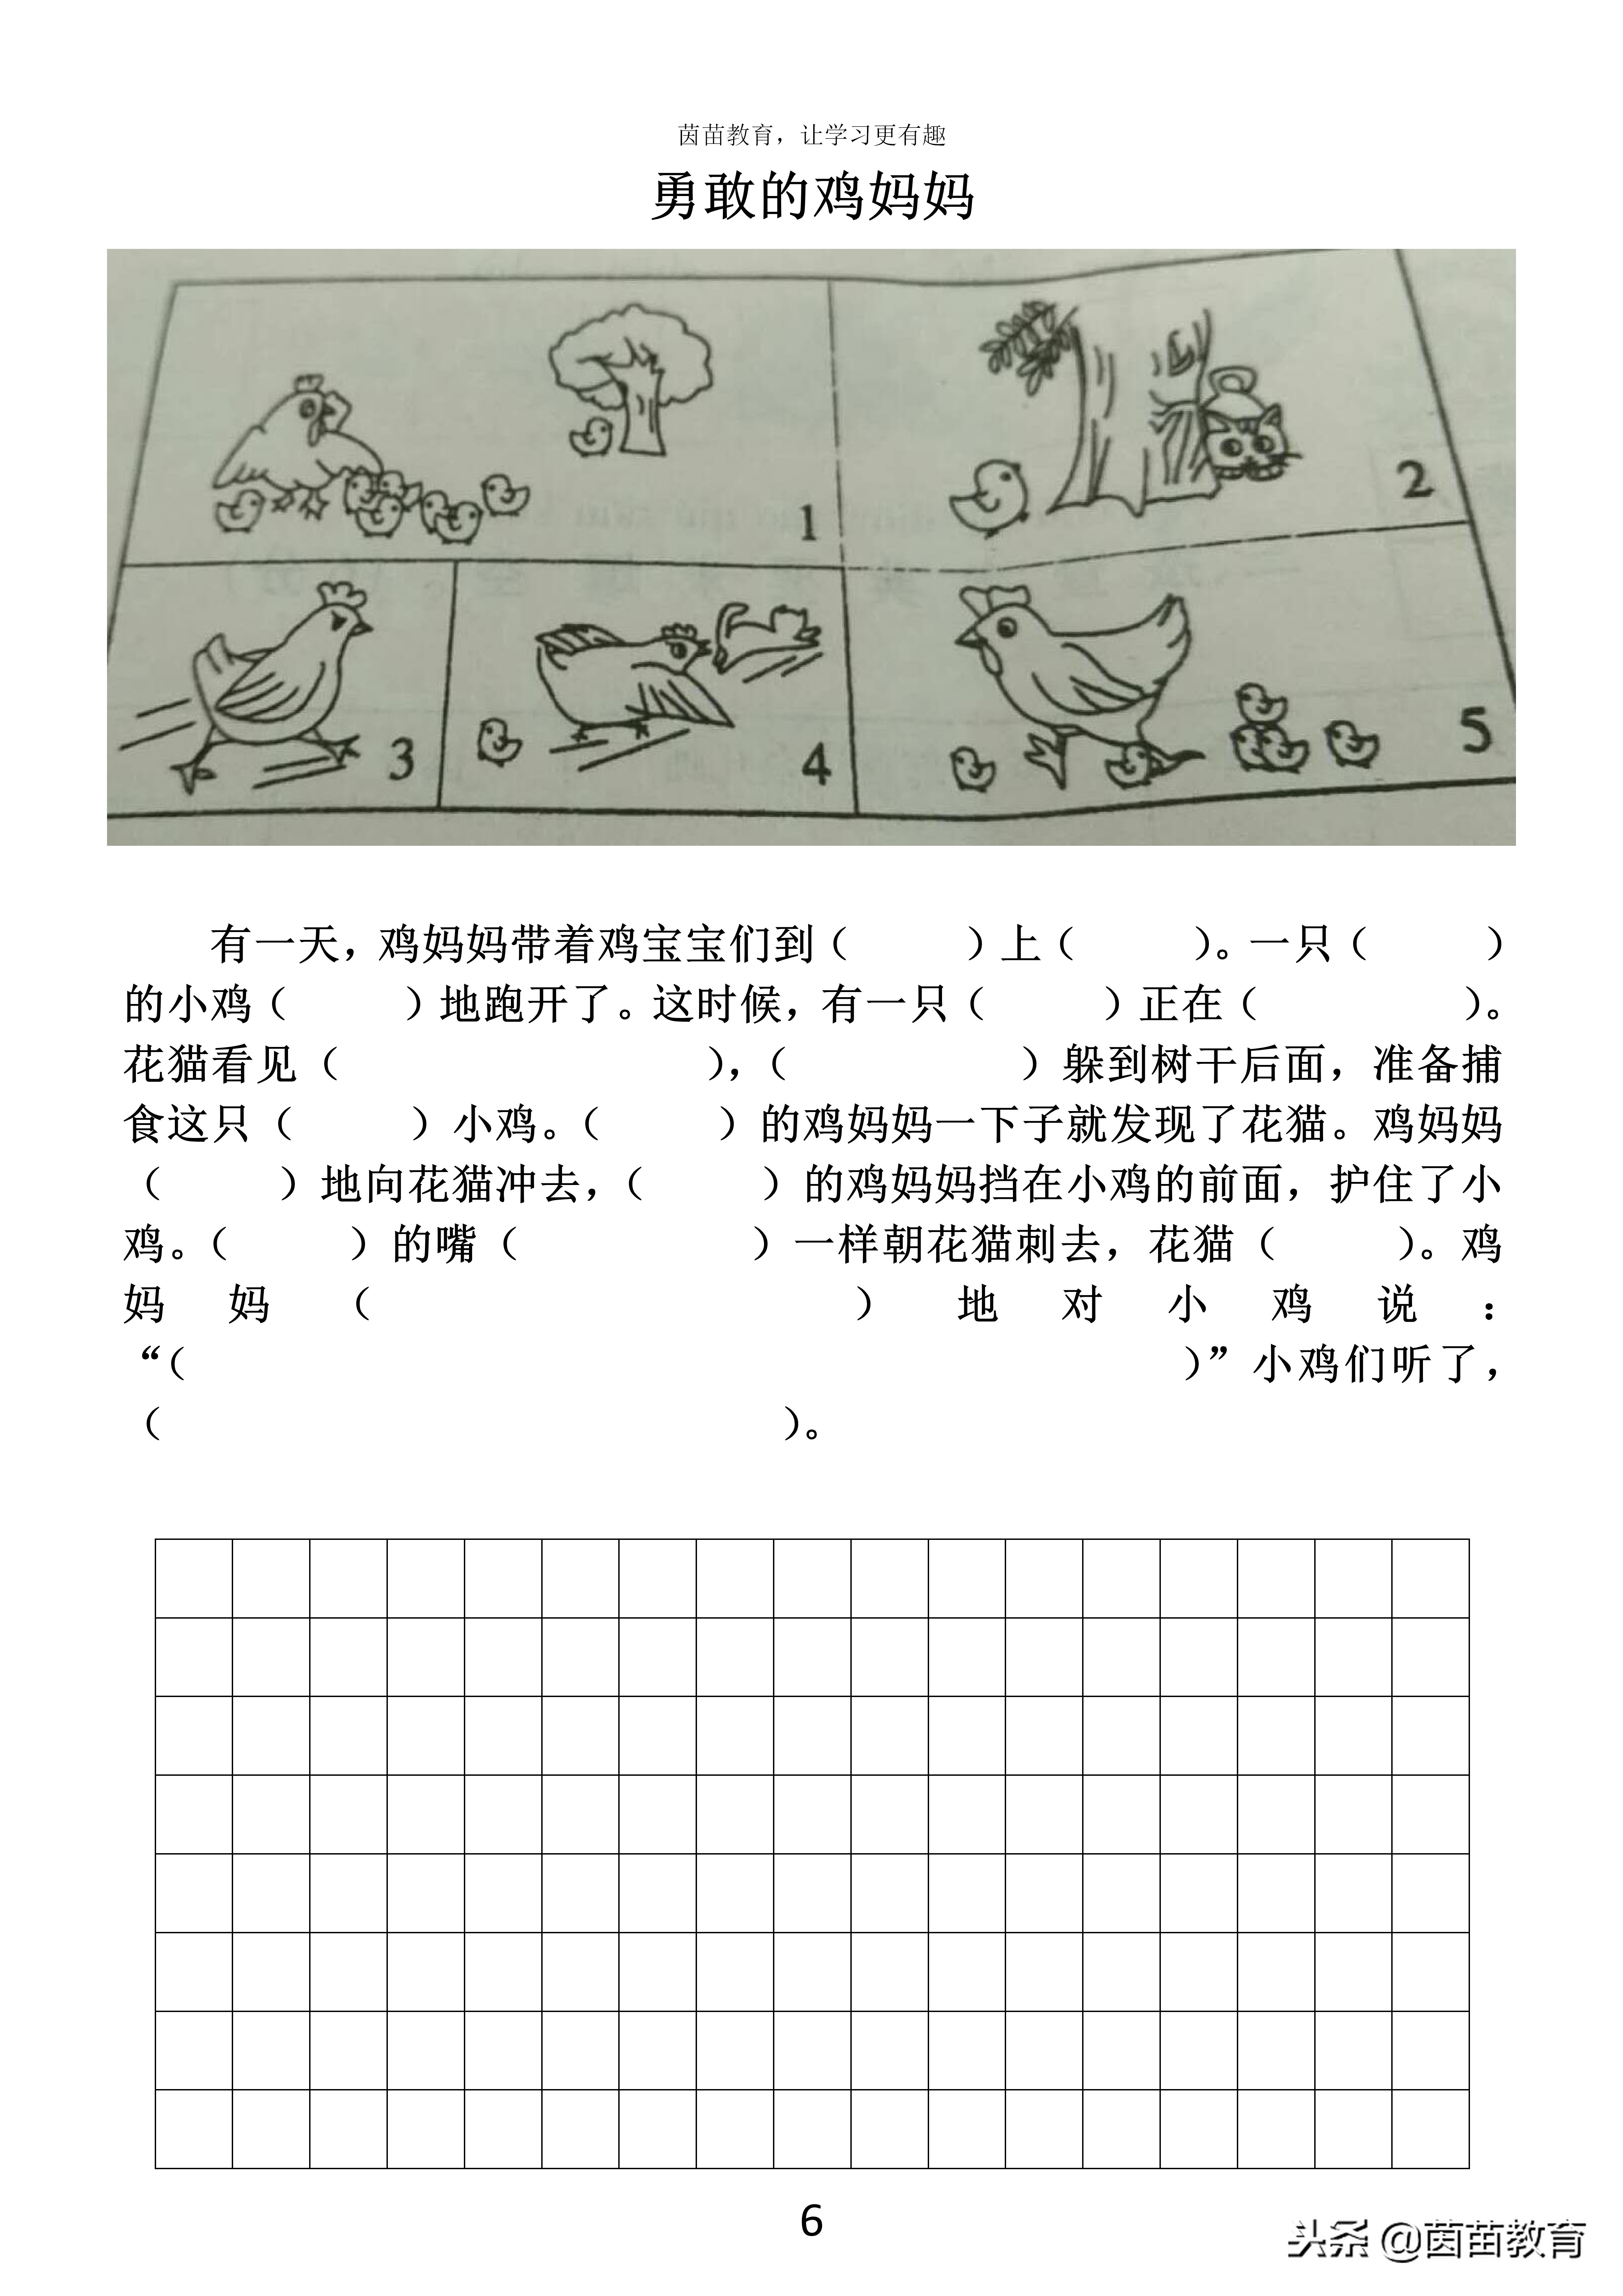 茵苗教育，让学习更有趣
勇敢的鸡妈妈
1
2
3
4
5
有一天，鸡妈妈带着鸡宝宝们到（ ）上（ ）。一只（ ）
的小鸡（ ）地跑开了。这时候，有一只（ ）正在（ ）。
花猫看见（ ），（ ）躲到树干后面，准备捕
食这只（ ）小鸡。（ ）的鸡妈妈一下子就发现了花猫。鸡妈妈
（ ）地向花猫冲去，（ ）的鸡妈妈挡在小鸡的前面，护住了小
鸡。（ ）的嘴（ ）一样朝花猫刺去，花猫（ ）。鸡
妈妈（ ）地对小鸡说：
“（ ）”小鸡们听了，
（ ）。
6
头条 @茵苗教育